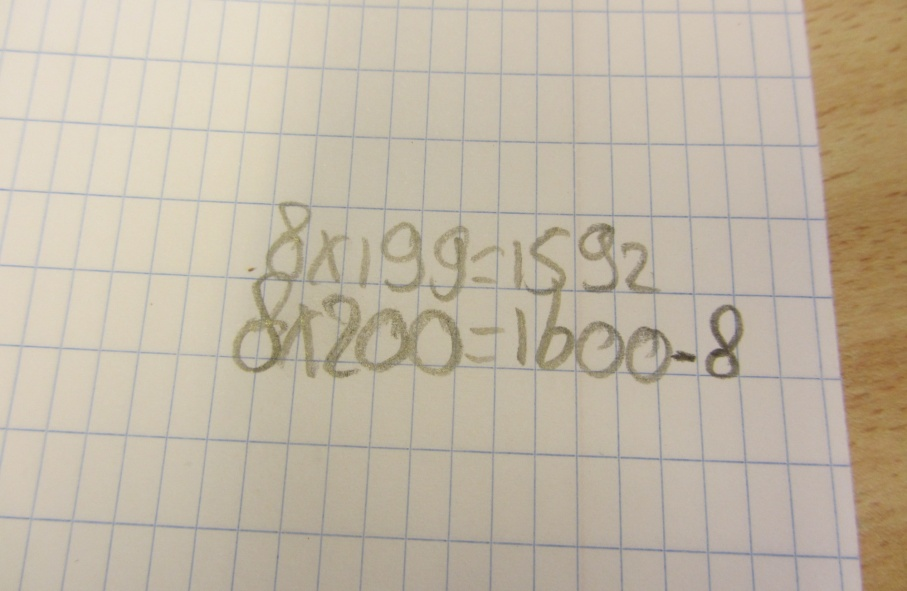 8x199=1592
8x200=1600-8